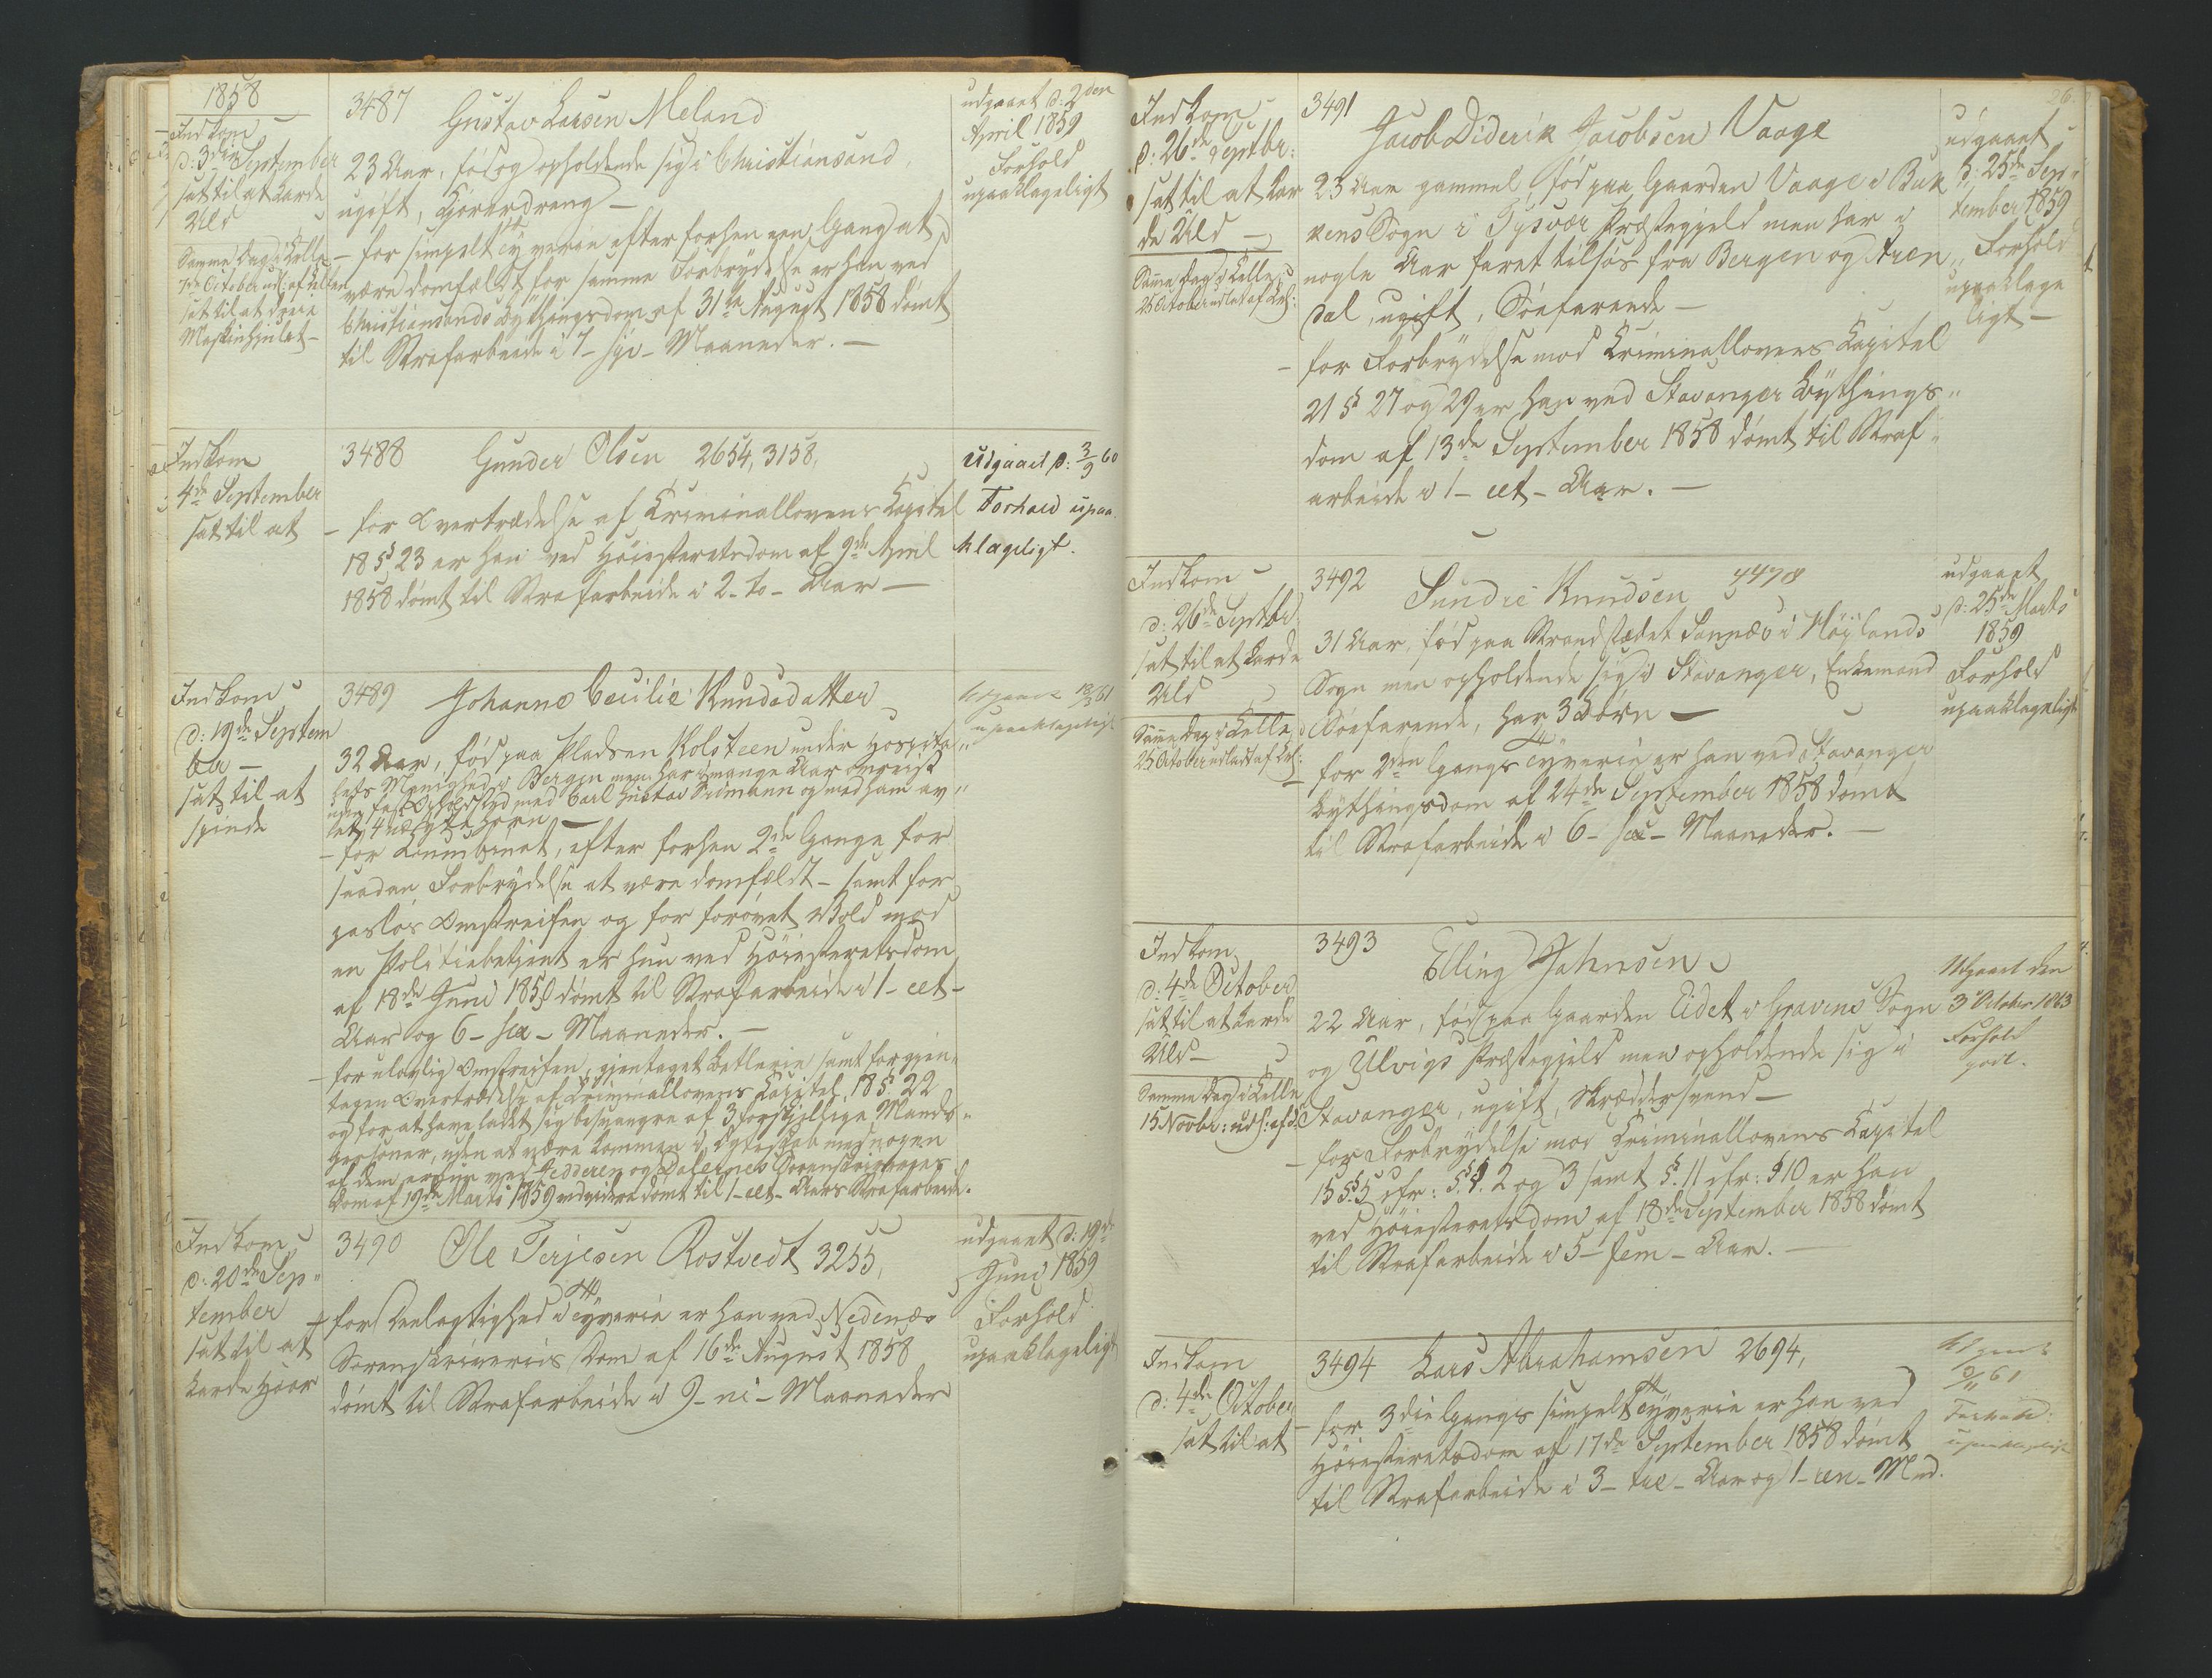 1858
Indkom
d: 3die September
sat til at karde
Uld
Samme Dag i Celle
7de October udl: af Cellen
sat til at dreie
Maskinhjulet –
3487 Gustav Larsen Meland
23 Aar, fød og opholdende sig i Christiansand
ugift, Kjøredreng –
– for simpelt Tyverie efter forhen een Gang at
være domfældt for samme Forbrydelse er han ved
Christiansands Bythingsdom af 31te August 1858 dømt
til Strafarbeide i 7 – syv – Maaneder. –
udgaaet d: 2den
April 1859
Forhold
upaaklageligt
Indkom
4de September
sat til at
3488 Gunder Olsen 2654, 3158,
– for Overtrædelse af Criminallovens Capitel
18 § 23 er han ved Høiesteretsdom af 9de April
1858 dømt til Strafarbeide i 2 – to – Aar –
Udgaaet d: 3/9 60
Forhold upaa
klageligt.
Indkom
d: 19de Septem
ber –
sat til at
spinde
3489 Johanne Cecilie Knudsdatter
32 Aar, fød paa Pladsen Kolsteen under Hospita„
lets Menighed i Bergen men har i mange Aar omreist
uden fast Opholdssted med Carl Gustav Siimann og med ham av„
let 4 uægte Børn –
– for Løsgjænge, efter forhen 2de Gange for
saadan Forbrydelse at være domfældt – samt for
pasløs Omstreifen og for forøvet Vold mod
en Politiebetjent er hun ved Høiesteretsdom
af 18de Juni 1858 dømt til Strafarbeide i 1 – eet –
Aar og 6 – sex – Maaneder. –
– for ulovlig Omstreifen, gjentaget Betlerie samt for gjen„
tagen Overtrædelse af Criminallovens Capitel 18 § 22
og for at have ladet sig besvangre af 3 forskjellige Mands„
personer, uden at være kommen i Ægteskab med nogen
af dem er hun ved Jedderen og Dalernes Sorenskriveries
Dom af 19de Marts 1859 endvidere dømt til 1 – eet – Aars Strafarbeide.
Udgaaet 18/3 61
upaaklageligt
Indkom
d: 20de Sep„
tember
sat til at
karde Haar
3490 Ole Terjesen Rostvedt 3255,
– for Deelagtighed i Tyverie er han ved Nedenæs
Sorenskriveries Dom af 16de August 1858
dømt til Strafarbeide i 9 – ni – Maaneder
udgaaet d: 19de
Juni 1859
Forhold
upaaklageligt
26.
Indkom
d: 26de Septbr:
sat til at kar
de Uld –
Samme Dag i Celle
25 October udladt af Cel:
3491
Jacob Diderik Jacobsen Vaage
23 Aar gammel, fød paa Gaarden Vaage i Buk
kens Sogn i Tysvær Præstegjeld men har i
nogle Aar faret tilsøs fra Bergen og Aren„
dal, ugift, Søefarende –
– for Forbrydelse mod Criminallovens Capitel
21 § 27 og 29 er han ved Stavanger Bythings„
dom af 13de September 1858 dømt til Straf„
arbeide i 1 – eet – Aar. –
udgaaet
d: 25de Sep„
tember 1859
Forhold
upaaklage
ligt –
Indkom
d: 26de Septbr
sat til at karde
Uld
Samme Dag i Celle
25 October udladt af Cel:
3492 Sundre Knudsen 4478
31 Aar, fød paa Strandstædet Sannæs i Høylands
Sogn men opholdende sig i Stavanger, Enkemand
Søefarende, har 3 Børn –
– for 2den Gangs Tyverie er han ved Stavanger
Bythingsdom af 24de September 1858 dømt
til Strafarbeide i 6 – sex – Maaneder. –
udgaaet
d: 25de Marts
1859
Forhold
upaaklageligt
Indkom
d: 4de October
sat til at karde
Uld –
Samme Dag i Celle
15 Novbr: udl: af d:
3493
Elling Johnsen
22 Aar, fød paa Gaarden Eidet i Gravens Sogn
og Ulvigs Præstegjeld men opholdende sig i
Stavanger, ugift, Skræddersvend –
– for Forbrydelse mod Criminallovens Capitel
15 § 5 cfr: §.§. 2 og 3 samt §. 11 cfr: § 10 er han
ved Høiesteretsdom af 18de September 1858 dømt
til Strafarbeide i 5 – fem – Aar. –
Udgaaet den
3die October 1863
Forhold
godt.
Indkom
d: 4de October
sat til at
3494 Lars Abrahamsen 2694,
– for 3die Gangs simpelt Tyverie er han ved
Høiesteretsdom af 17de September 1858 dømt
til Strafarbeide i 3 – tre – Aar og 1 – een – Mnd.
Udgaaet
/11 61
Forhold:
upaaklageligt